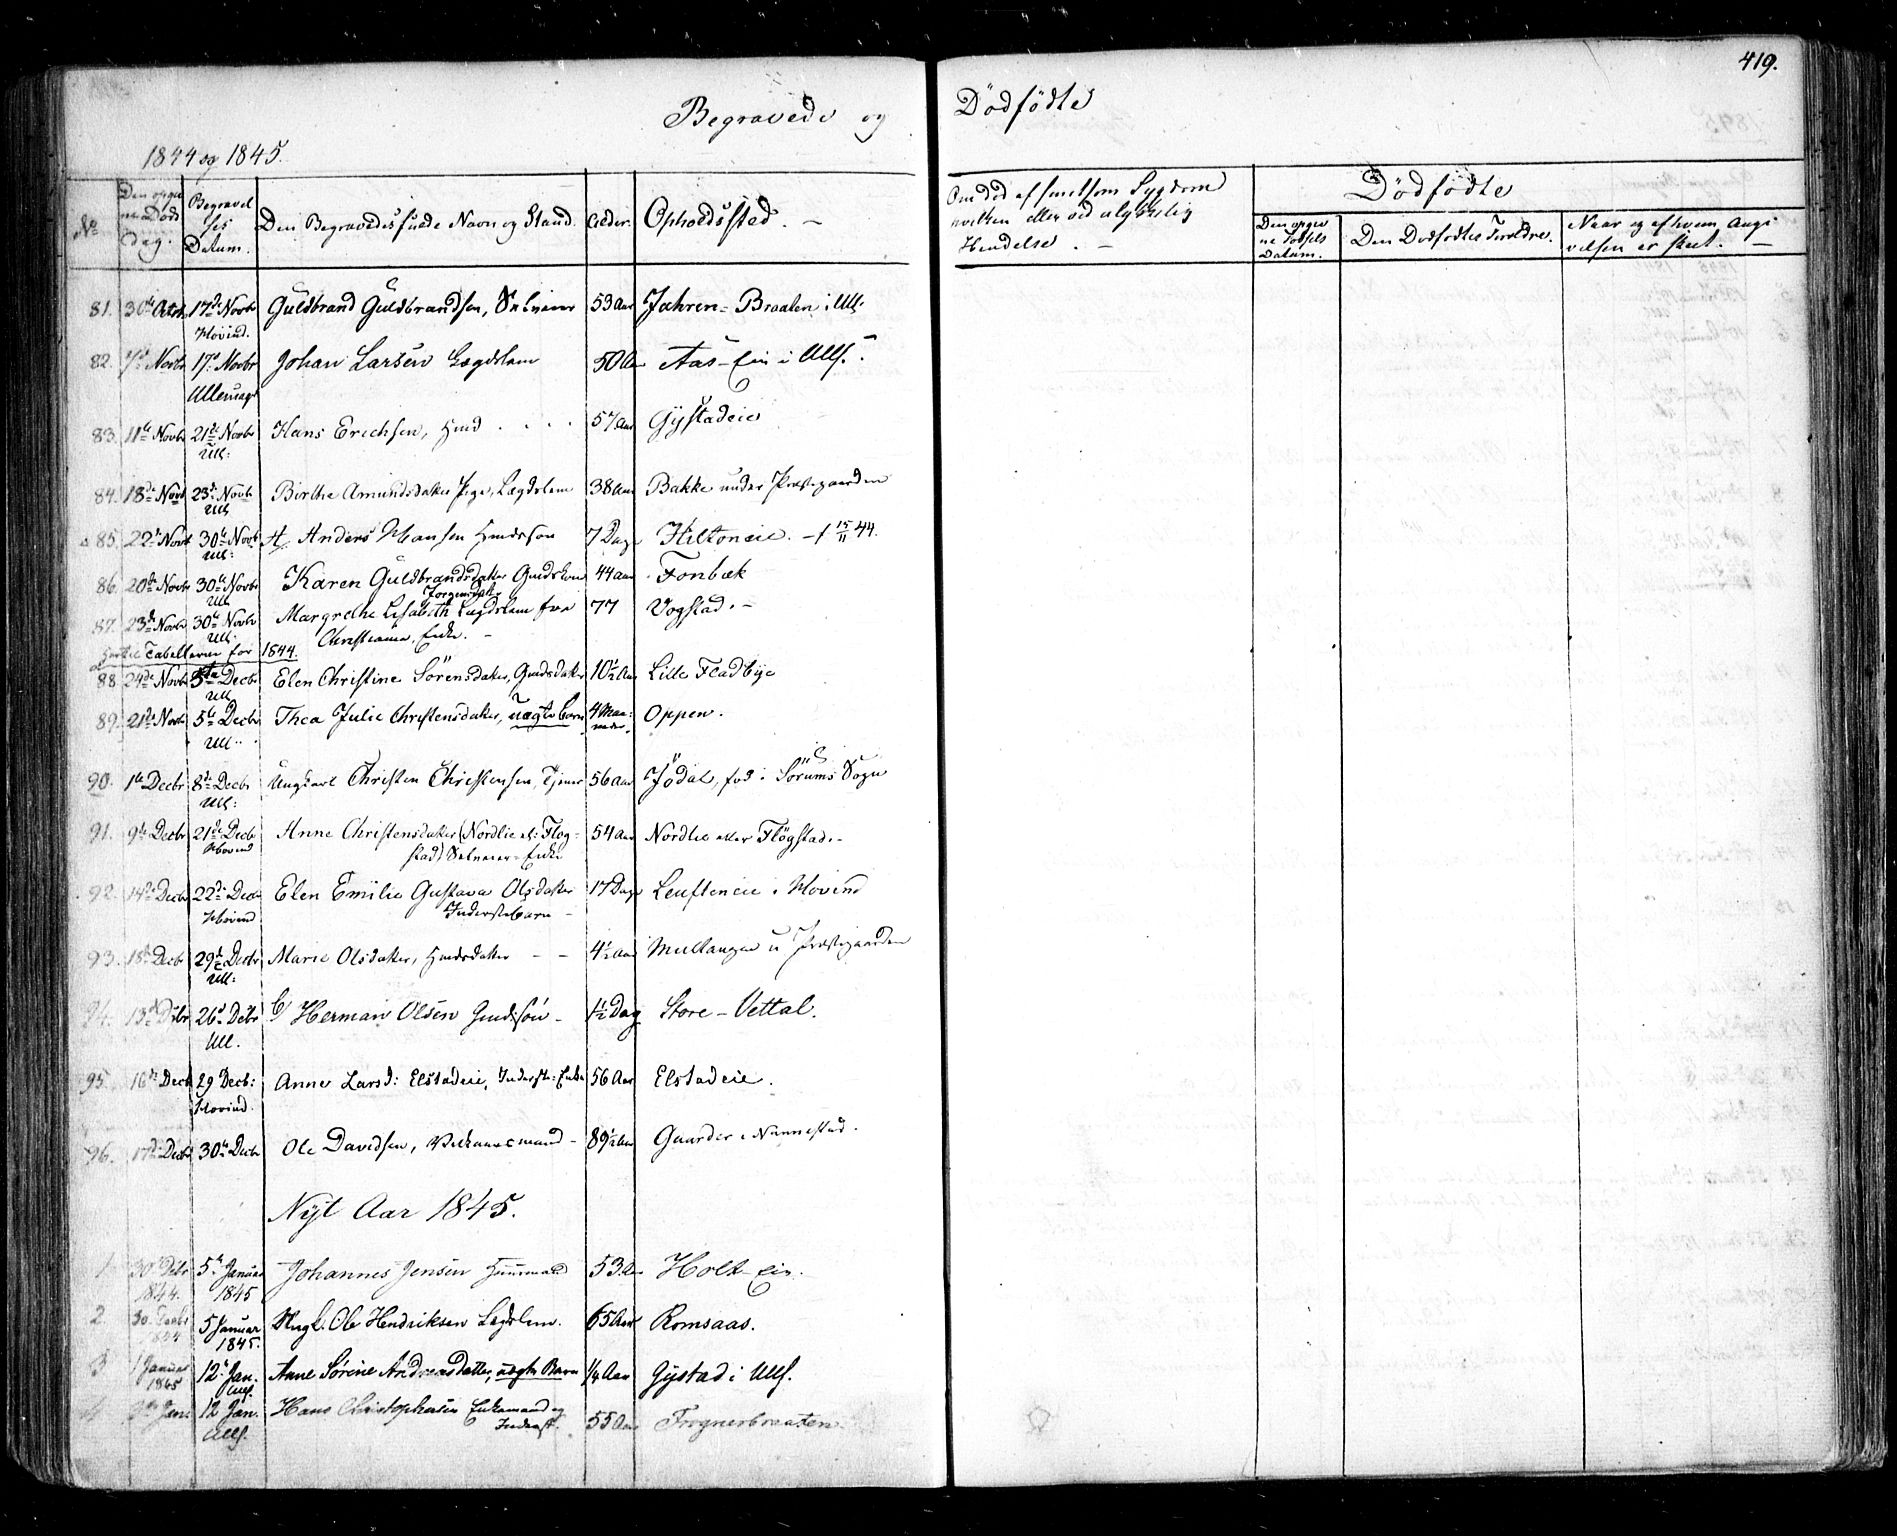 419.
Begravede og Dödfödte
1844 og 1845.
No
Den opgivne Döds Dag.
Begravelses Datum.
Den Begravedes fulde Navn og Stand.
Alder.
Opholdssted. –
Om död af smitsom Sygdom
hvilken eller ved ulykkelig
Hendelse. –
Dödfödte
Den opgivne Födsels Datum.
Den Dödfödtes Forældre.
Naar og af hvem Angivelsen er skeet. –
81. 30te Octb. 17de Novbr Hovind. Guldbrand Guldbrandsen, Selveier 53 Aar Jahren-Braaten i Ulls.
82. Novbr 17de Novbr Ullensager Johan Larsen Lægdslem 50 Aar Aas-Eie i Ulls.
83. 11te Novbr 21de Novbr Ull: Hans Erichsen, Hmd . . . . 57 Aar Gystadeie
84. 18de Novb 23de Novb Ull Birthe Amundsdatter Pige, Lægdslem 38 Aar Bakke under Præstegaarden
85. 22de Novbr 30te Novb Ull: Anders Hansen Hmdssøn 7 Dage Hiltoneie. – f 15/11 44.
86. 20de Novbr 30te Novbr Ull Karen Guldbrandsdatter Gmdskone 44 Aar Fonbæk
87. 23de Novbr 30te Novbr Ull. Margrethe Lisabeth Jørgensdtr Lægdslem fra 77 Vogstad. –
Christiania, Enke. –
Hertil Tabellerne for 1844.
88. 24de Novbr 5te Decbr Ull Elen Christine Sörensdatter, Gmdsdatter 10½ Aar Lille Fladbye
89. 21de Novbr 5te Decbr Ull. Thea Julie Christensdatter, uægte Barn 4 Maaneder. Oppen.
90. 1te Decbr 8de Decbr Ull: Ungkarl Christen Christensen, Tjener 56 Aar Jödal, föd i Sörums Sogn
91. 9de Decbr 21de Decb Hovind Anne Christensdatter (Nordlie el: Flog-
stad) Selveier-Enke 54 Aar Nordlie eller Flögstad. –
92. 14de Decbr 22de Decbr Hovind Elen Emilie Gustava Olsdatter
Inderstebarn – 17 Dage Leufteneie i Hovind
93. 18de Decbr 29de Decbr Ull: Marie Olsdatter, Hmdsdatter – – 4½ Aar Mellangen u Præstegaarden
94. 13de Dcbr 26de Dcbr Ull. Herman Olsen Gmdssön – ½ Dag Store-Vettal.
95. 16de Decb 29 Decb: Hovind. Anne Larsd: Elstadeie, Inderste-Enke 56 Aar Elstadeie.
96. 17de Decbr 30te Decbr Ole Davidsen, Vilkaarsmand – 89½ Aar Gaarder i Nannestad.
Nyt Aar 1845.
1 30te Dcbr 1844. 5te Januar 1845 Johannes Jensen Huusmand 53 Aar Holt-Eie.
2 30 Decbr 1844 5 Januar 1845. Ungk. Ole Hendriksen Lægdslem. 65 Aar Romsaas.
3 1 Januar 1845 12te Jan. Ulls. Anne Sørine Andreasdatter, uægte Barn ¼ Aar Gystad i Ulls.
4 Jan. 12 Jan. Ulls. Hans Christophersen Enkemand og
Inderst. 55 Aar Frognerbraaten.